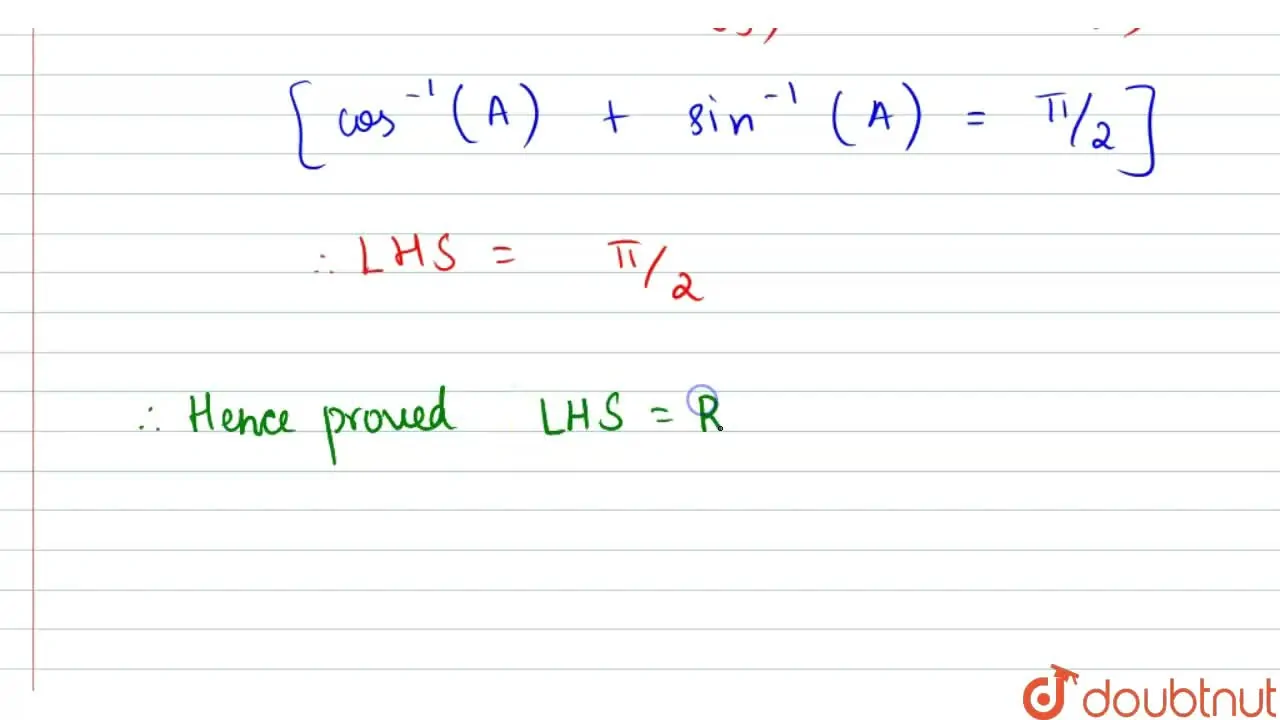 [cos⁻¹(A) + sin⁻¹(A) = π/2]
∴ LHS = π/2
∴ Hence proved LHS = R
doubtnut